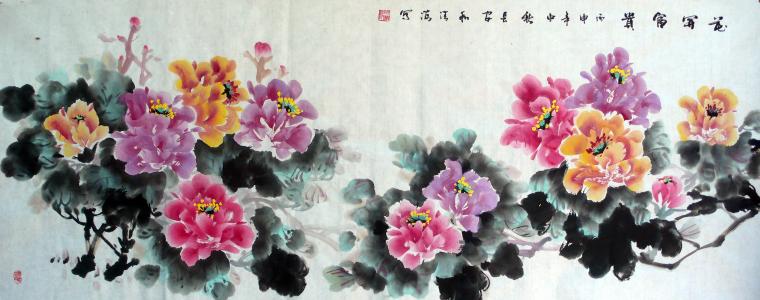 花開富貴丙申年中秋長安清海寫